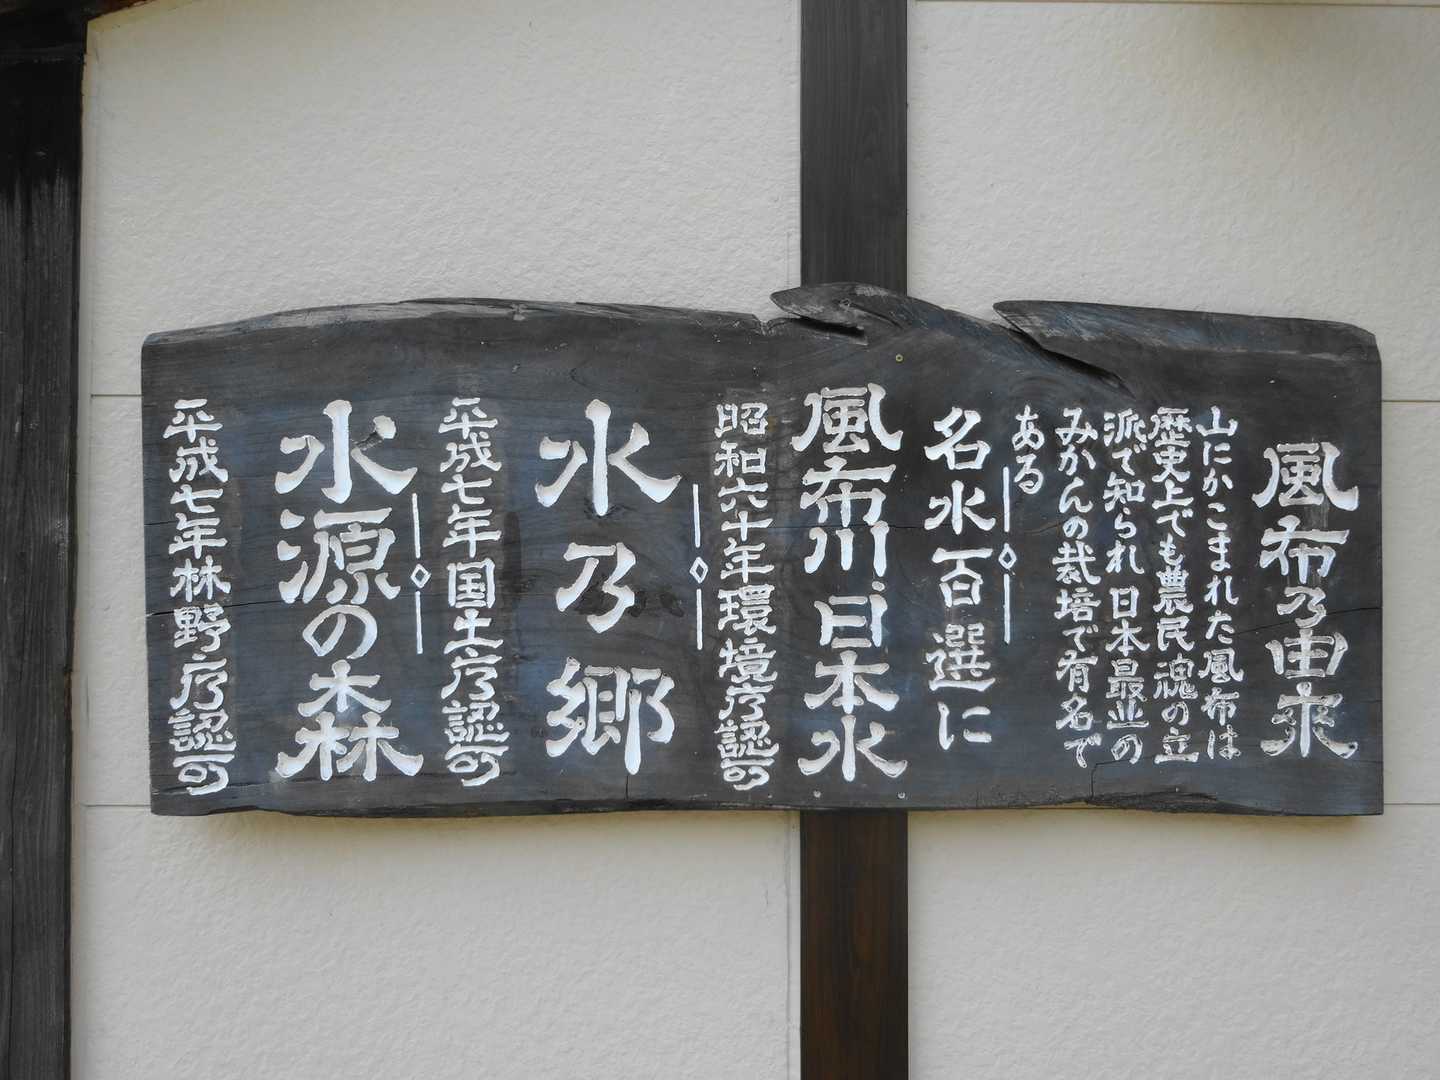 風布乃由来
山にかこまれた風布は
歴史上でも農民魂の立
派で知られ日本最北の
みかんの栽培で有名で
ある
名水百選に
風布川・日本水
昭和六十年環境庁認可
水乃郷
平成七年国土庁認可
水源の森
平成七年林野庁認可